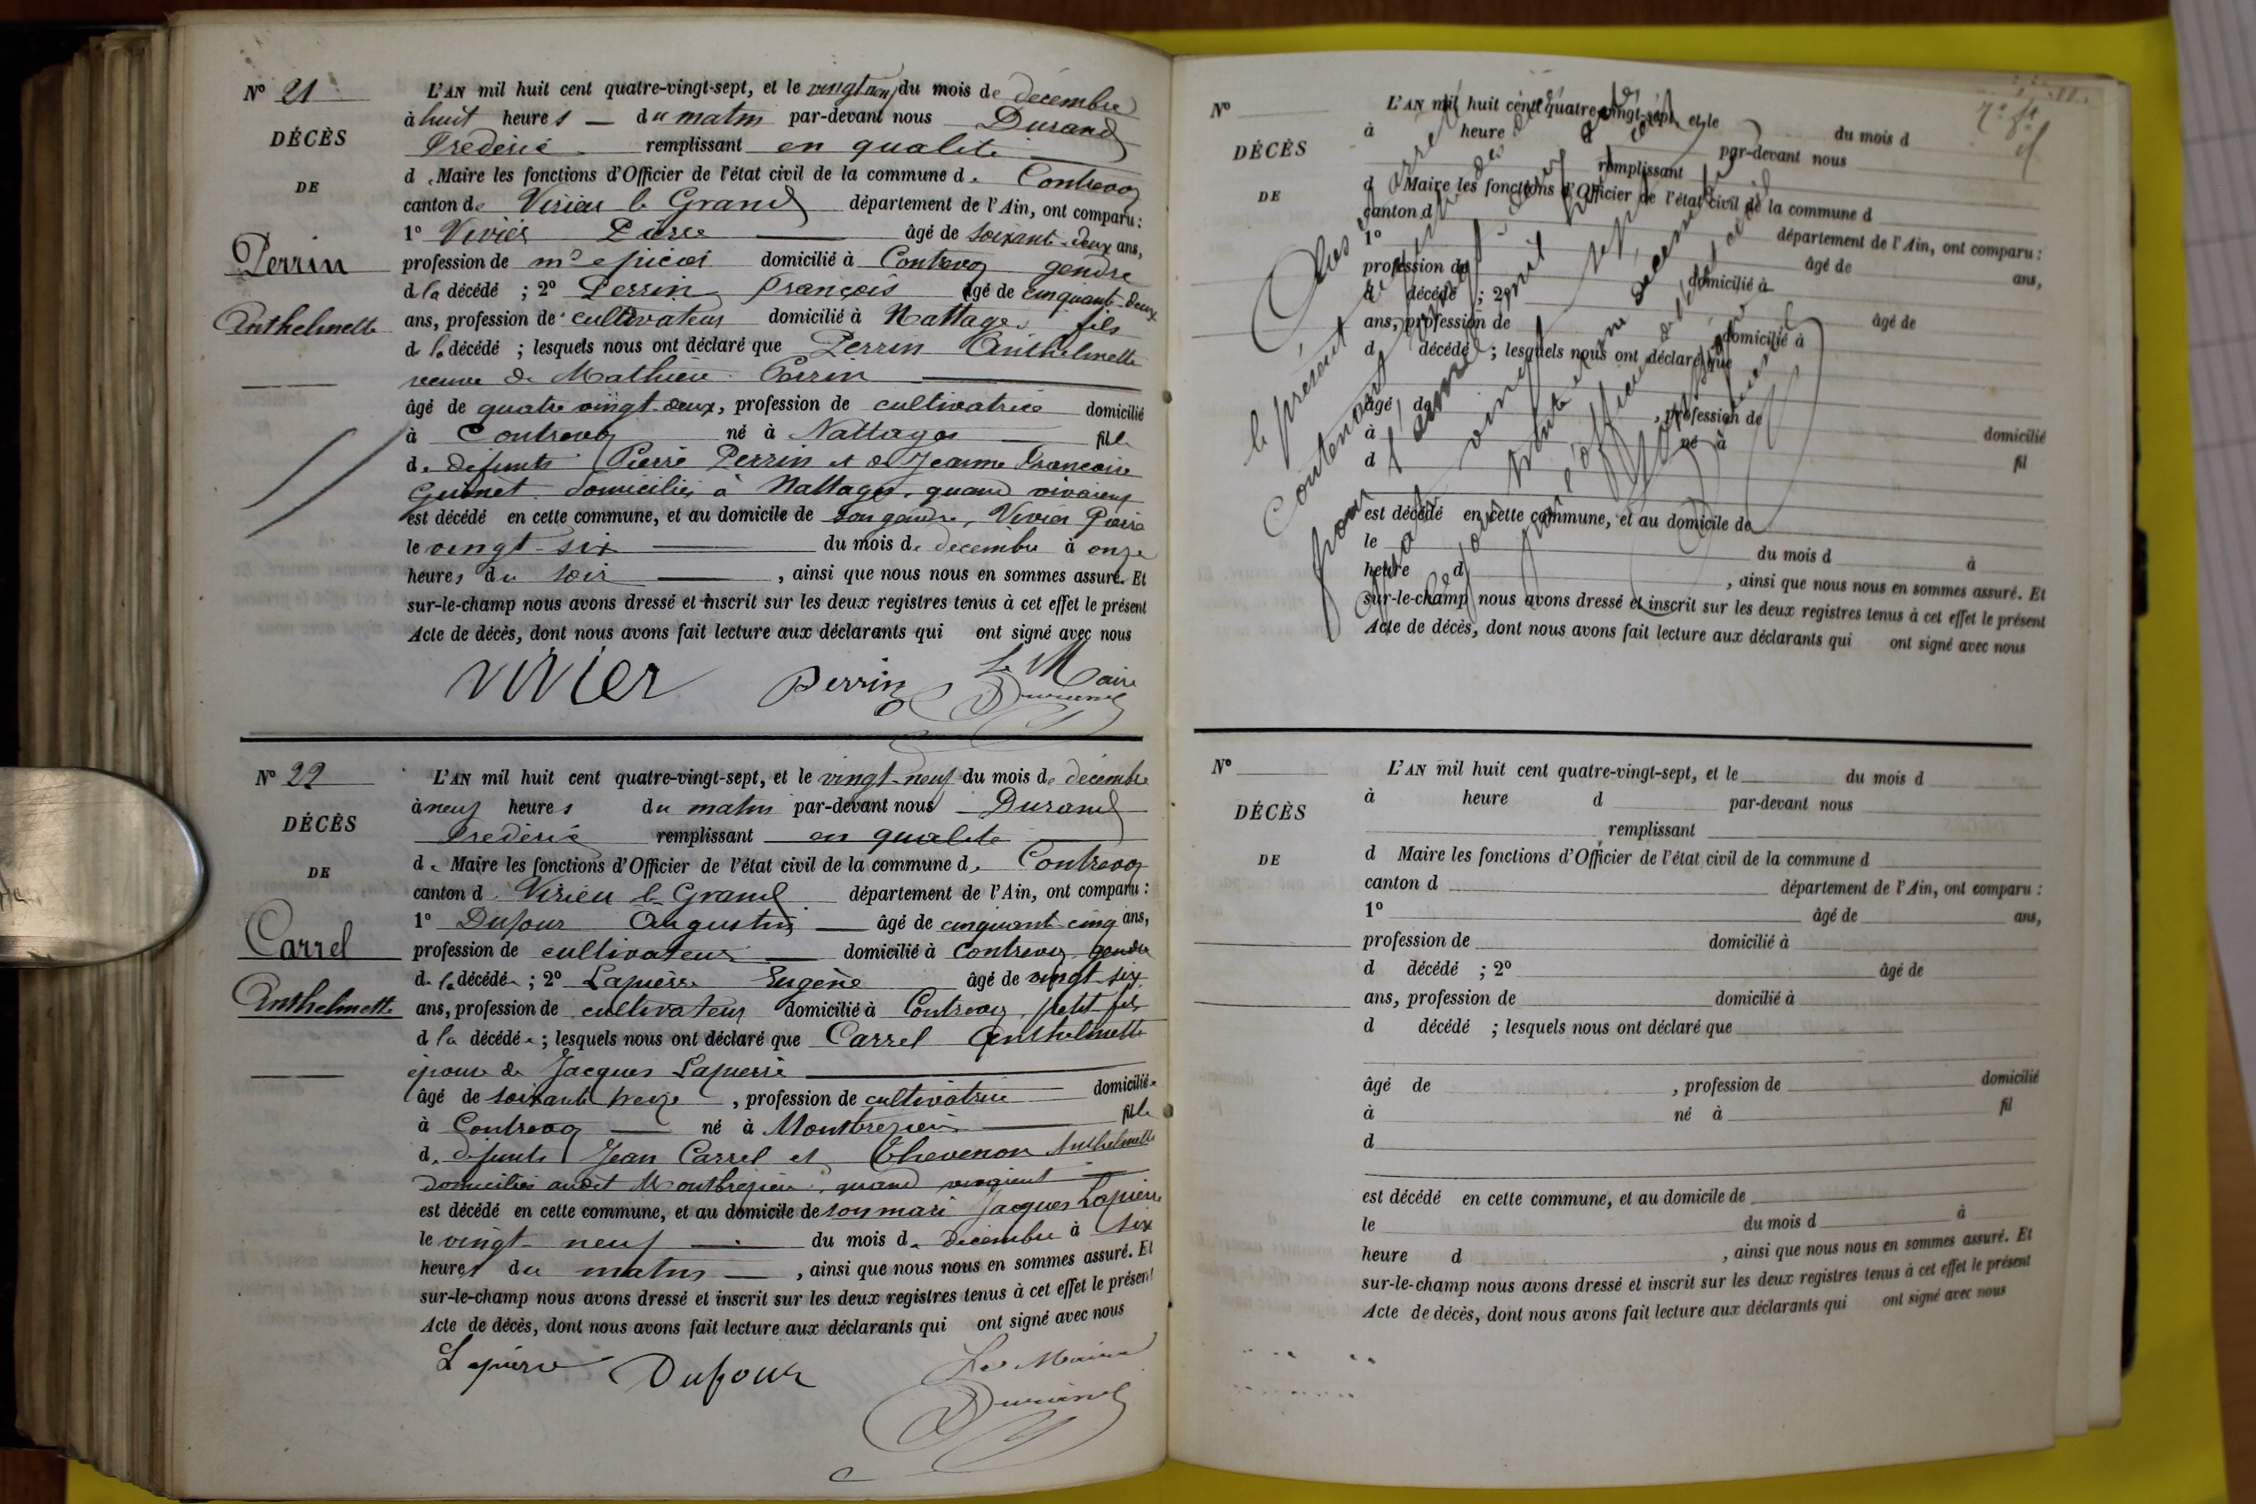 N° 21
DÉCÈS
DE
Perrin
Anthelmette
L'AN mil huit cent quatre-vingt-sept, et le du mois de décembre
à huit heures du matin par-devant nous Durand
Frédéric remplissant en qualité
d Maire les fonctions d'Officier de l'état civil de la commune de Contrevoz
canton de Virieu le Grand département de l'Ain, ont comparu :
1° Vivier Pierre âgé de soixante-deux ans,
profession de md epicier domicilié à Contrevoz gendre
d la décédé ; 2° Perrin François âgé de cinquante-deux
ans, profession de cultivateur domicilié à Nattages fils
de la décédé ; lesquels nous ont déclaré que Perrin Anthelmette
veuve de Mathieu Perrin
âgé de quatre vingt-deux, profession de cultivatrice domicilié
à Contrevoz né à Nattages fille
de défunts Pierre Perrin et de Jeanne Francoise
Guinet domiciliés à Nattages, quand vivaient
est décédé en cette commune, et au domicile de son gendre, Vivier Pierre
le vingt-six du mois de décembre à onze
heures du soir , ainsi que nous nous en sommes assuré. Et
sur-le-champ nous avons dressé et inscrit sur les deux registres tenus à cet effet le présent
Acte de décès, dont nous avons fait lecture aux déclarants qui ont signé avec nous
Vivier Perrin Le Maire
Durand
N° 22
DÉCÈS
DE
Carrel
Anthelmette
L'AN mil huit cent quatre-vingt-sept, et le vingt-neuf du mois de décembre
à neuf heures du matin par-devant nous Durand
Frédéric remplissant en qualité
de Maire les fonctions d'Officier de l'état civil de la commune de Contrevoz
canton d Virieu le Grand département de l'Ain, ont comparu :
1° Dufour Augustin âgé de cinquante-cinq ans,
profession de cultivateur domicilié à Contrevoz gendre
de la décédée ; 2° Lapierre Eugène âgé de vingt-six
ans, profession de cultivateur domicilié à Contrevoz, petit fils
d la décédée ; lesquels nous ont déclaré que Carrel Anthelmette
épouse de Jacques Lapierre
âgé de soixante treize , profession de cultivatrice domiciliée
à Contrevoz né à Montbrezieu fille
de défunts Jean Carrel et Thevenon Anthelmette
domiciliés audit Montbrezieu, quand vivaient
est décédé en cette commune, et au domicile de son mari Jacques Lapierre
le vingt-neuf du mois de décembre à six
heures du matin , ainsi que nous nous en sommes assuré. Et
sur-le-champ nous avons dressé et inscrit sur les deux registres tenus à cet effet le présent
Acte de décès, dont nous avons fait lecture aux déclarants qui ont signé avec nous
Lapierre Dufour Le Maire
Durand
N°
DÉCÈS
DE
L'AN mil huit cent quatre-vingt-sept, et le du mois d
à heure d par-devant nous
remplissant
d Maire les fonctions d'Officier de l'état civil de la commune d
canton d département de l'Ain, ont comparu :
1° âgé de ans,
profession de domicilié à
d décédé ; 2° âgé de
ans, profession de domicilié à
d décédé ; lesquels nous ont déclaré que
âgé de , profession de domicilié
à né à fil
d
est décédé en cette commune, et au domicile de
le du mois d à
heure d , ainsi que nous nous en sommes assuré. Et
sur-le-champ nous avons dressé et inscrit sur les deux registres tenus à cet effet le présent
Acte de décès, dont nous avons fait lecture aux déclarants qui ont signé avec nous
le présent
Contenant
pour l'année
N°
DÉCÈS
DE
L'AN mil huit cent quatre-vingt-sept, et le du mois d
à heure d par-devant nous
remplissant
d Maire les fonctions d'Officier de l'état civil de la commune d
canton d département de l'Ain, ont comparu :
1° âgé de ans,
profession de domicilié à
d décédé ; 2° âgé de
ans, profession de domicilié à
d décédé ; lesquels nous ont déclaré que
âgé de , profession de domicilié
à né à fil
d
est décédé en cette commune, et au domicile de
le du mois d à
heure d , ainsi que nous nous en sommes assuré. Et
sur-le-champ nous avons dressé et inscrit sur les deux registres tenus à cet effet le présent
Acte de décès, dont nous avons fait lecture aux déclarants qui ont signé avec nous